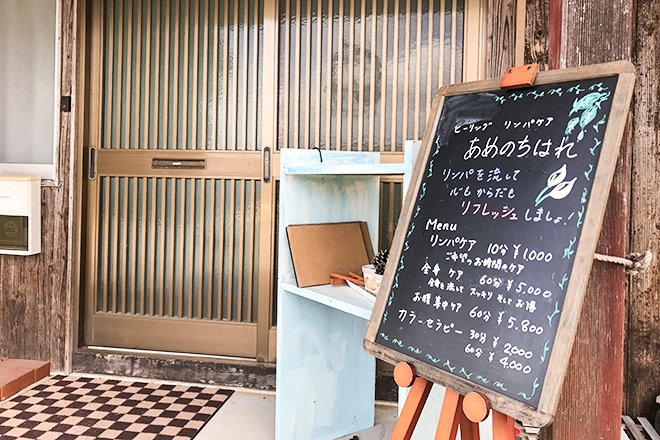 ヒーリング リンパケア
あめのちはれ
リンパを流して
心も からだも
リフレッシュ しましょ!
Menu
リンパケア 10分 ¥1,000
ご希望のお時間のケア
全身 ケア 60分 ¥5,000
全身を流して スッキリ そしてお得
お腹集中ケア 60分 ¥5,800
カラーセラピー 30分 ¥2,000
60分 ¥4,000